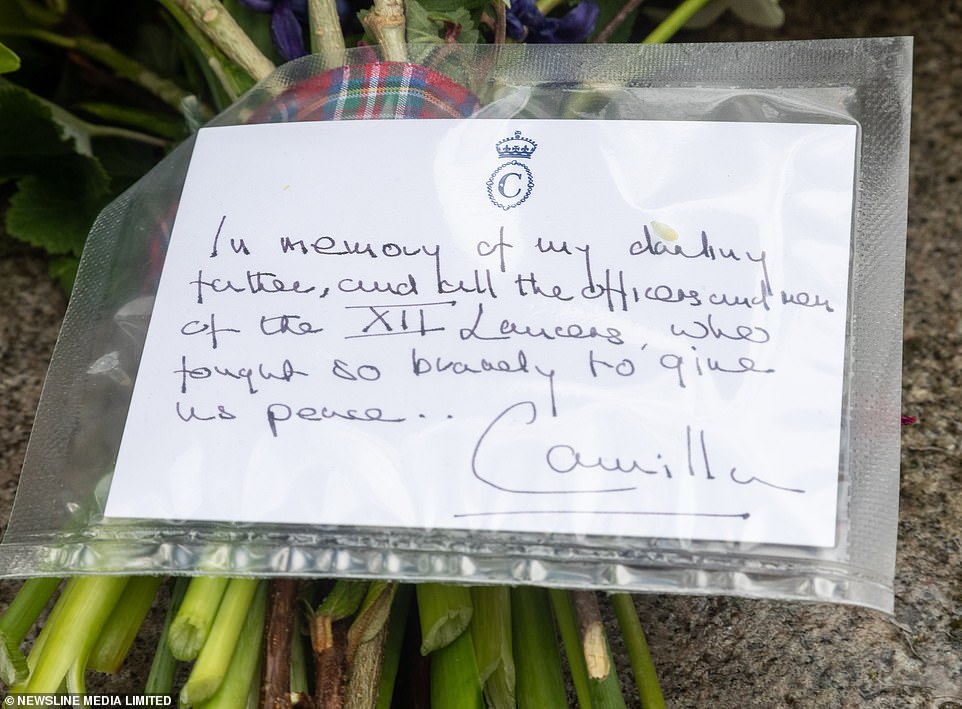 C
In memory of my darling
father, and all the officers and men
of the XII Lancers, who
fought so bravely to give
us peace...
Camilla
© NEWSLINE MEDIA LIMITED